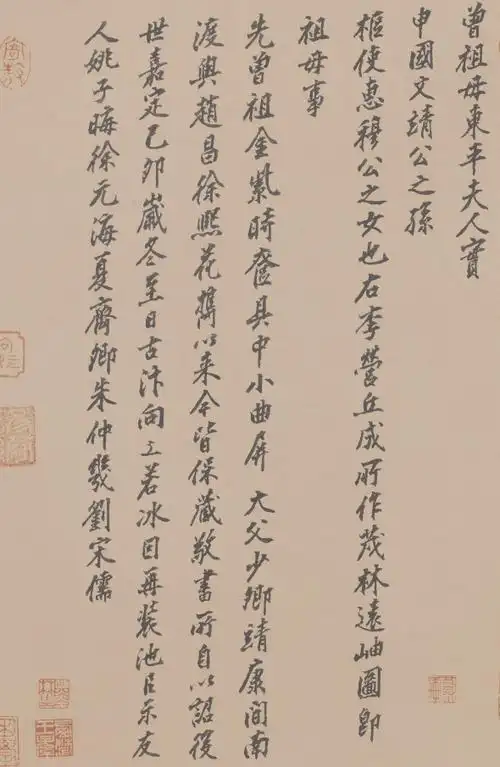 曾祖母東平夫人實
申國文靖公之孫
樞使惠穆公之女也右李營丘成所作茂林遠岫圖卽
祖母事
先曾祖金紫時奩具中小曲屏大父少卿靖康間南
渡與趙昌徐熙花攜以來今皆保藏敬書所自以詔後
世嘉定己卯歲冬至日古汴向水若冰因再裝池呂示友
人姚子晦徐元海夏齊卿朱仲幾劉宋儒